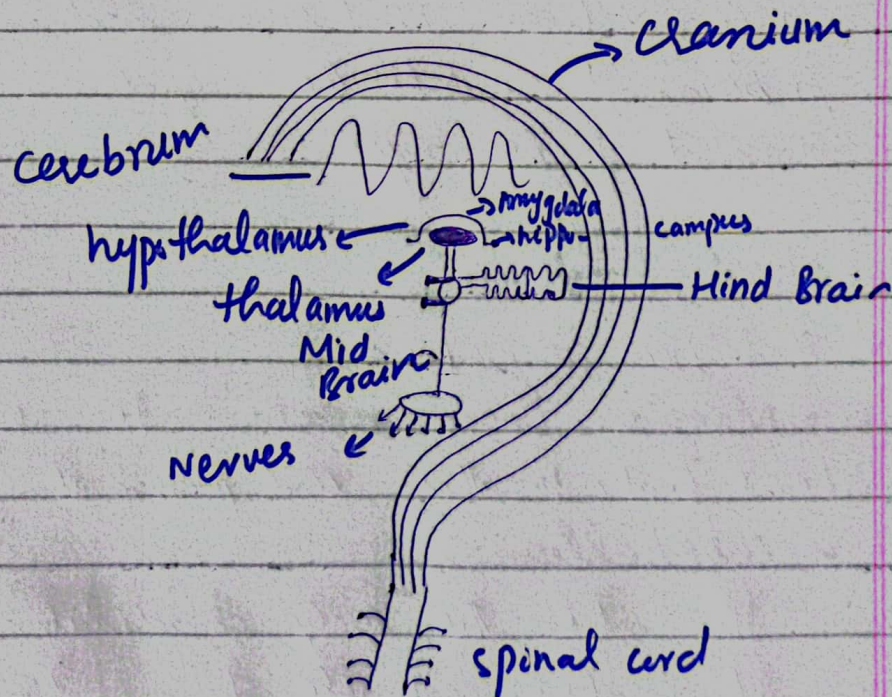 Cranium
Cerebrum
Amygdala
hypothalamus
hippo-
campus
thalamus
Hind Brain
Mid
Brain
Nerves
spinal cord